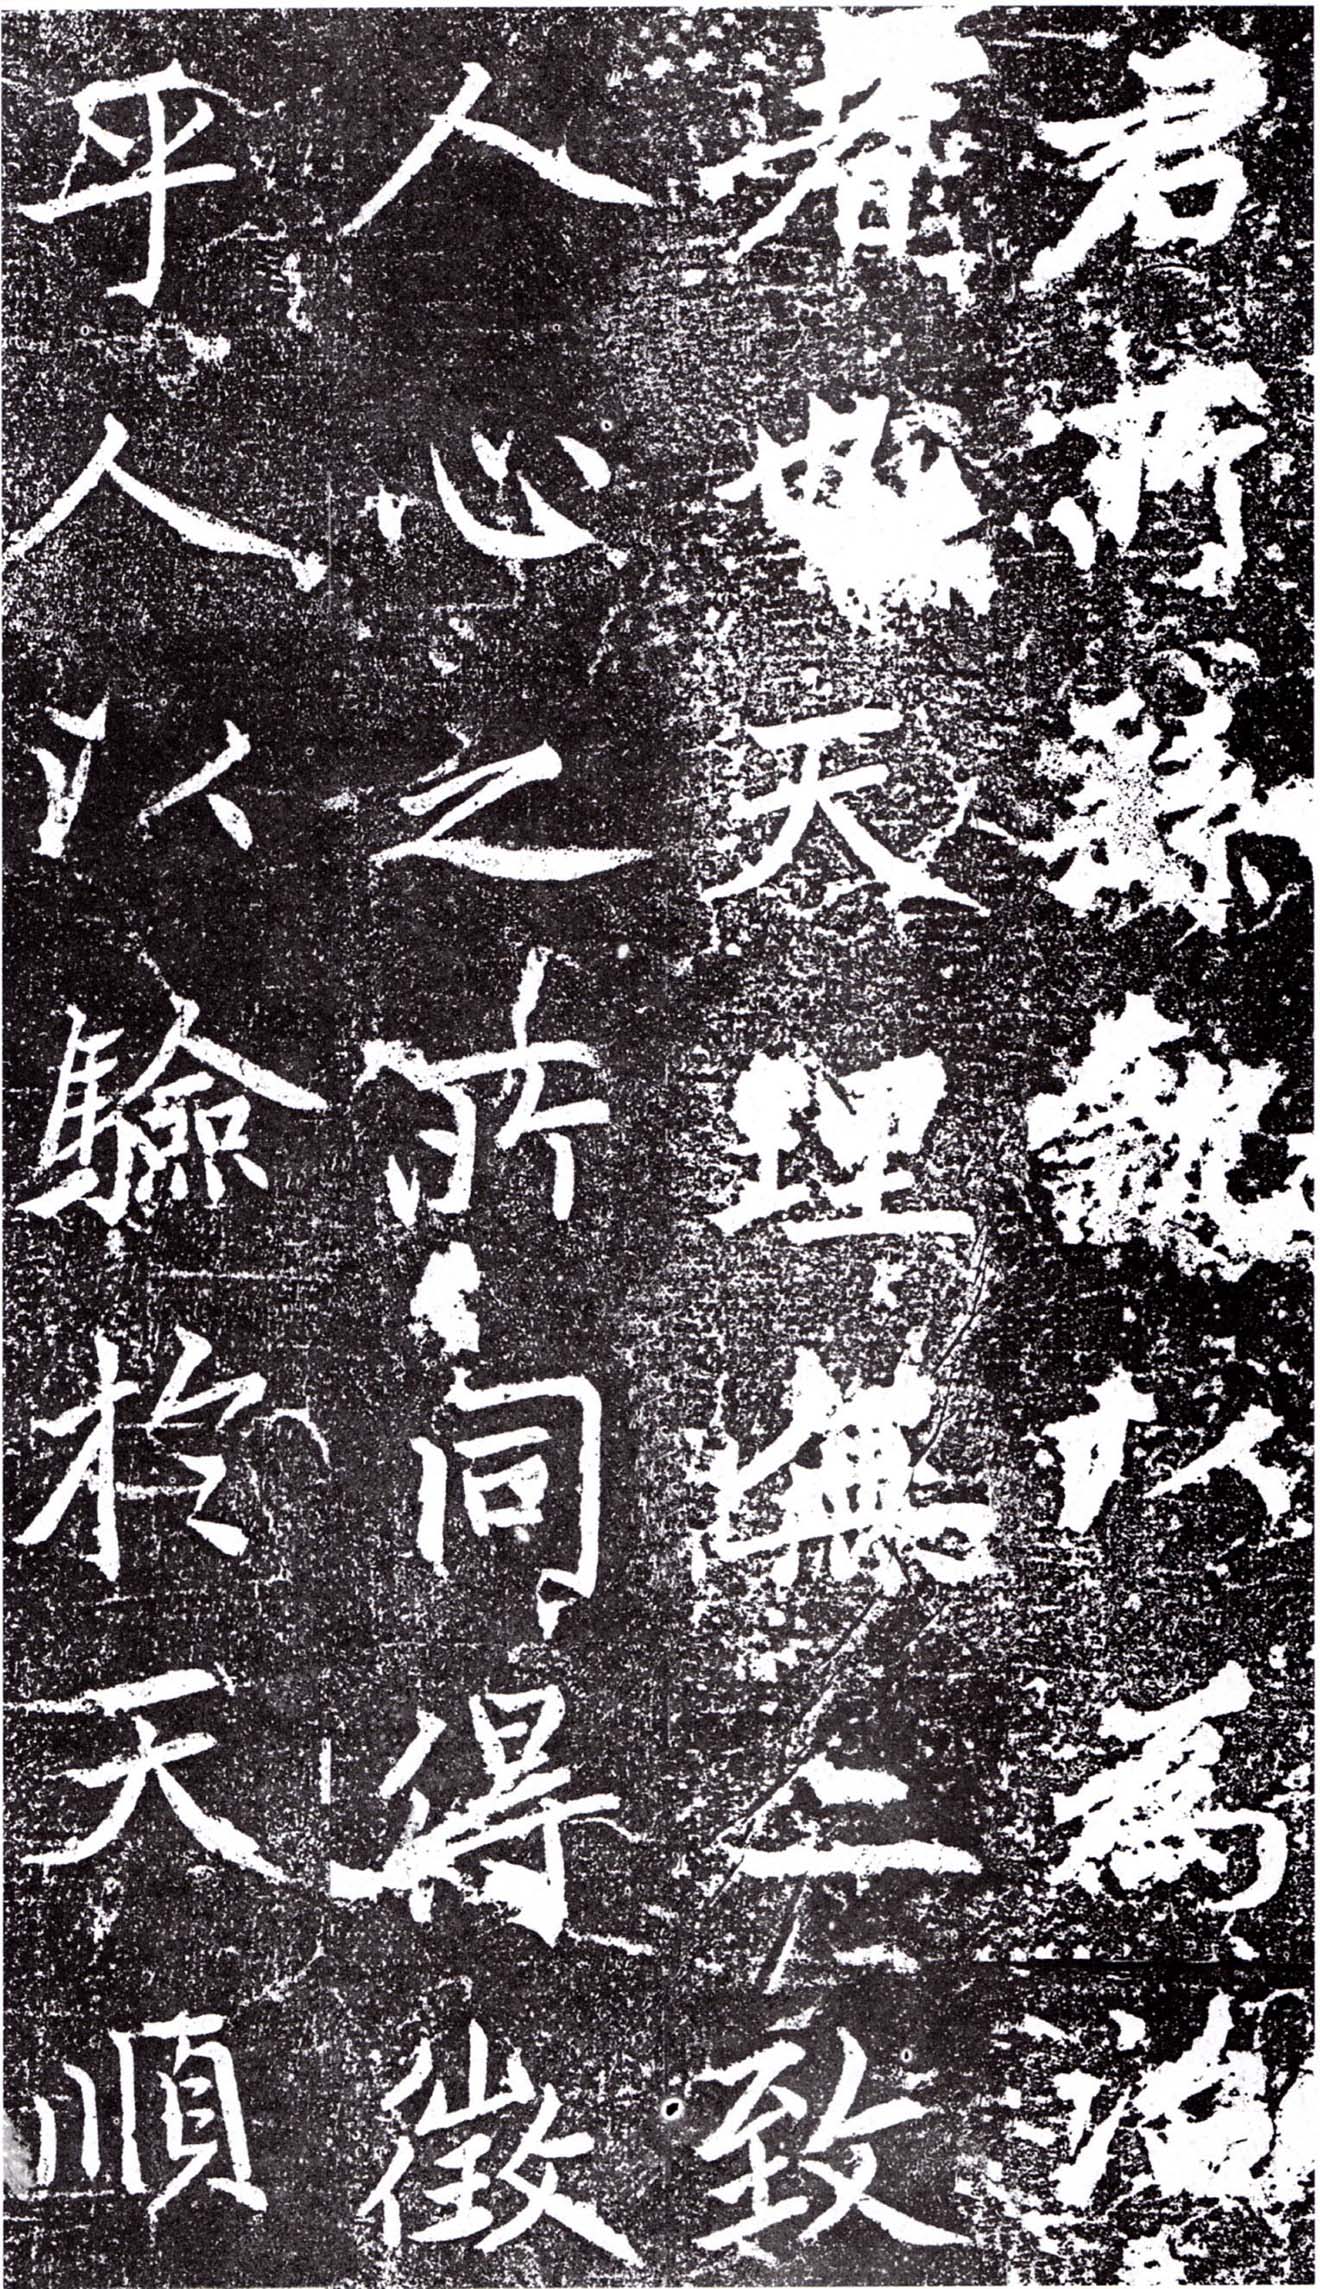 君所繇觀以為治
者天理無二致
人心之所同得徵
乎人以驗於天順